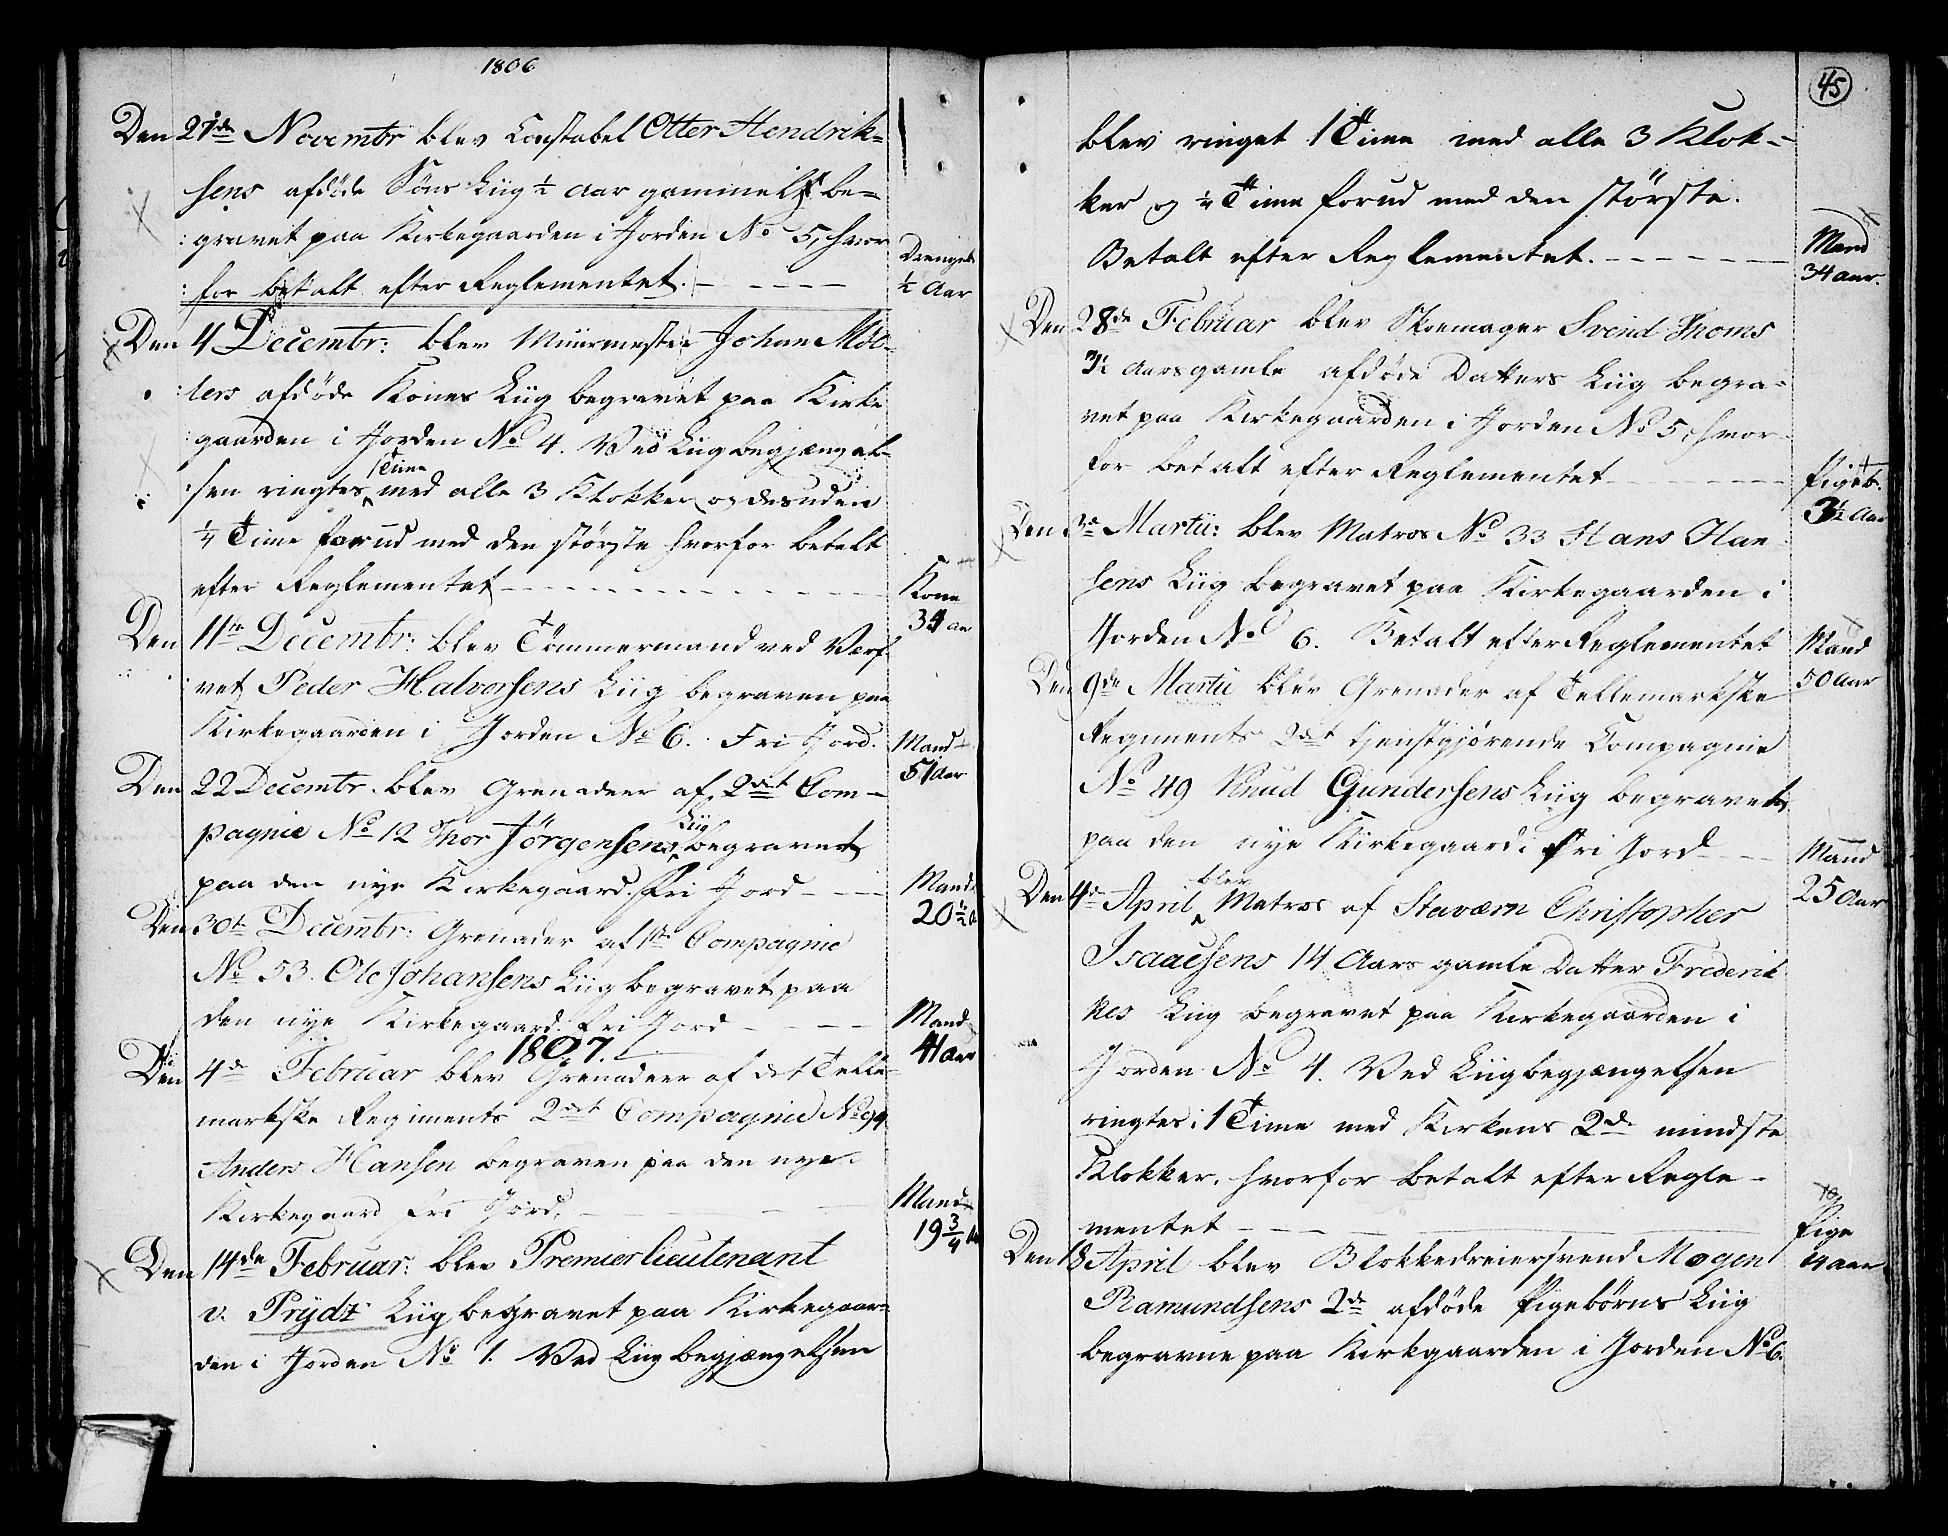 1806
Den 27de Novembr blev Constabel Otter Hendrik=
sens afdöde Söns Liig ½ Aar gammel be=
gravet paa Kirkegaarden i Jorden No 5, hvor
for betalt efter Reglementet. - - - - -
Drengeb
½ Aar
Den 4 Decembr: blev Muurmester Johan Möl-
lers afdöde Kones Liig begravet paa Kirke
gaarden i Jorden No 4. Ved Liigbegjængel-
sen ringtes 1 Time med alle 3 Klokker og desuden
¼ Time forud med den störste hvorfor betalt
efter Reglementet - - - - - - - - - -
Kone
34 aar
Den 11te Decembr: blev Tömmermand ved Verf-
vet Peder Halvorsens Liig begraven paa
Kirkegaarden i Jorden No 6. Fri Jord.
Mand
51 Aar
Den 22 Decembr. blev Grenadeer af 2det Com-
pagnie No 12 Thor Jörgensens Liig begravet
paa den nye Kirkegaard. Fri Jord - - -
Mand
20½ A
Den 30te Decembr: Grenader af 1ste Compagnie
No 53. Ole Johansens Liig begravet paa
den nye Kirkegaard. Fri Jord - - - -
Mand
41 aar
1807.
Den 4de Februar blev Grenadeer af det Telle-
markske Regiments 2det Compagnie No 94
Anders Hansen begraven paa den nye
Kirkegaard fri Jord. - - - -
Mand
19¾ A
Den 14de Februar: blev Premierlieutenant
v. Prydz Liig begravet paa Kirkegaar=
den i Jorden No 1. Ved Liigbegjængelsen
45
blev ringet 1 Time med alle 3 Klok-
ker og ¼ Time forud med den störste.
Betalt efter Reglementet. - - - - - -
Mand
34 aar.
Den 28de Februar blev Skoemager Svend Thoms
3½ Aars gamle afdöde Datters Liig begra-
vet paa Kirkegaarden i Jorden No 5, hvor-
for betalt efter Reglementet - - - - -
Pigeb.
3½ Aar
Den 3de Martii: blev Matros No 33 Hans Han
sens Liig begravet paa Kirkegaarden i
Jorden No 6. Betalt efter Reglementet
Mand
50 Aar
Den 9de Martii blev Grenader af Tellemarkske
Regiments 2det tjenstgjörende Compagnie
No 49 Knud Gundersens Liig begravet
paa den nye Kirkegaard i fri Jord - - -
Mand
25 Aar
Den 4de April blev Matros af Staværn Christopher
Isaacsens 14 Aars gamle Datter Frederik
kes Liig begravet paa Kirkegaarden i
Jorden No 4. Ved Liigbegjængelsen
ringtes: 1 Time med Kirkens 2de mindste
Klokker, hvorfor betalt efter Regle-
mentet - - -
Pige
14 aar
Den 18 April blev Blokkedreiersvend Mogen
Ramundsens 2de afdöde Pigebörns Liig
begravne paa Kirkgaarden i Jorden No 6.